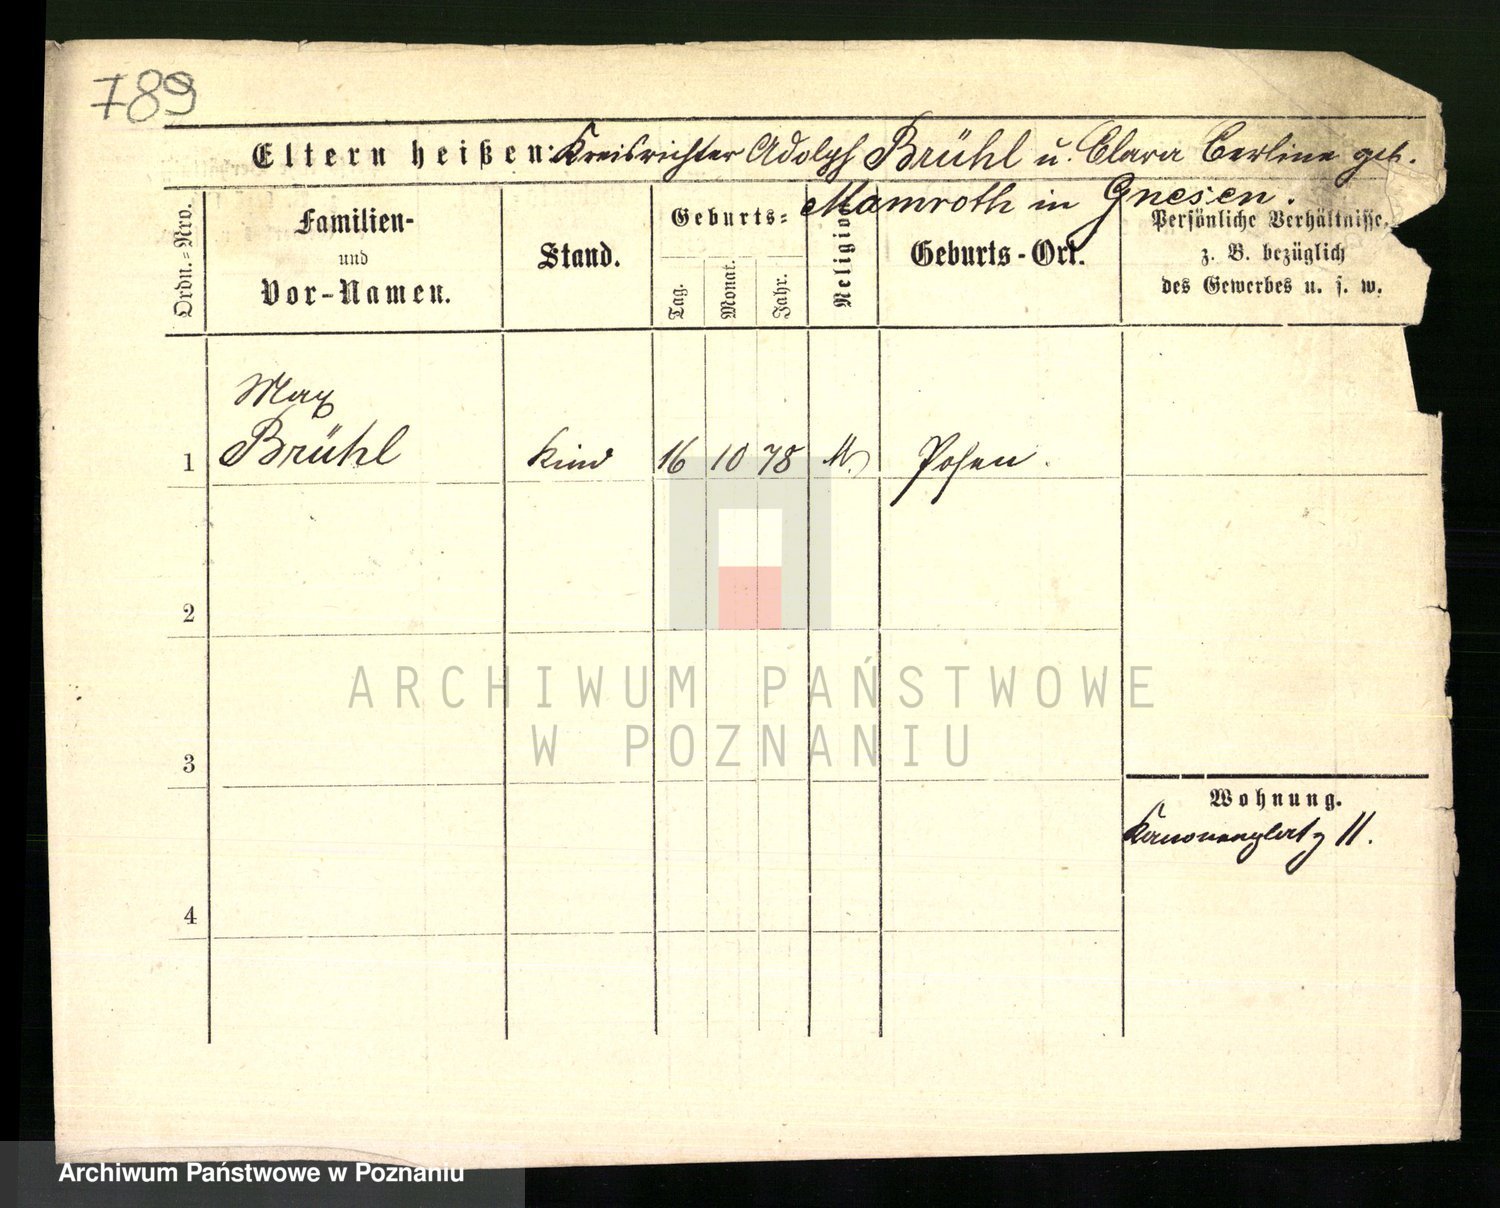 789
Eltern heißen: Kreisrichter Adolph Brühl u. Clara Cerline geb.
Mamroth in Gnesen.
Ordn.-Nro.
Familien-
und
Vor-Namen.
Stand.
Geburts-
Tag.
Monat.
Jahr.
Religion
Geburts-Ort.
Persönliche Verhältnisse,
z. B. bezüglich
des Gewerbes u. s. w.
Max
1 Brühl Kind 16 10 78 Posen.
2
3
4
Wohnung.
Kanonenplatz 11.
ARCHIWUM PAŃSTWOWE
W POZNANIU
Archiwum Państwowe w Poznaniu